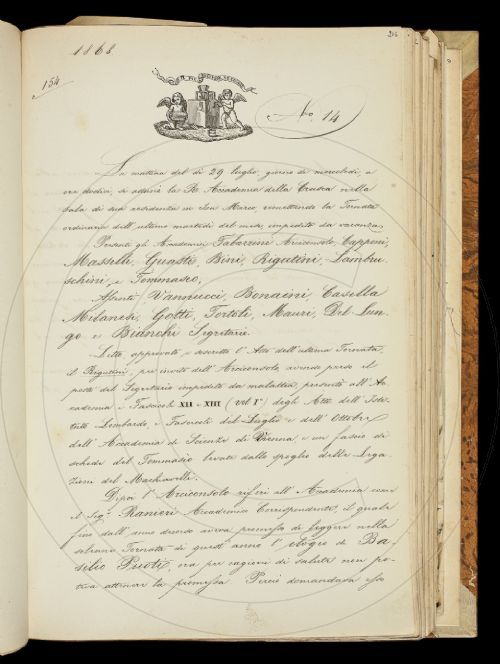 206
1868
154
No. 14
La mattina del dì 29 luglio, giorno di mercoledì, a
ore dodici, si adunò la R. Accademia della Crusca nella
Sala di sua residenza in San Marco, rimettendo la Tornata
ordinaria dell'ultimo martedì del mese, impedita da vacanza.
Presenti gli Accademici Tabarrini Arciconsolo, Capponi,
Masselli, Guasti, Bini, Rigutini, Lambru-
schini, e Tommaseo,
Assenti Vannucci, Bonaini, Casella
Milanesi, Gotti, Tortoli, Mauri, Del Lun-
go e Bianchi Segretario.
Letto, approvato e soscritto l'Atto dell'ultima Tornata,
il Rigutini, per invito dell'Arciconsolo, avendo preso il
posto del Segretario impedito da malattia, presentò all'Ac-
cademia i Fascicoli XII - XIII (vol. I°) degli Atti dell'Isti-
tuto Lombardo, i Fascicoli del Luglio e dell'Ottobre
dell'Accademia di Scienze di Vienna, e un fascio di
schede del Tommaseo levate dallo spoglio delle Lega-
zioni del Machiavelli.
Dipoi l'Arciconsolo riferì all'Accademia come
il Sig.r Ranieri Accademico Corrispondente, il quale
fino dall'anno decorso aveva promesso di leggere nella
solenne Tornata di quest'anno l'elogio di Ba-
silio Puoti, ora per ragioni di salute non po-
teva attenere la promessa. Perciò domandava essa